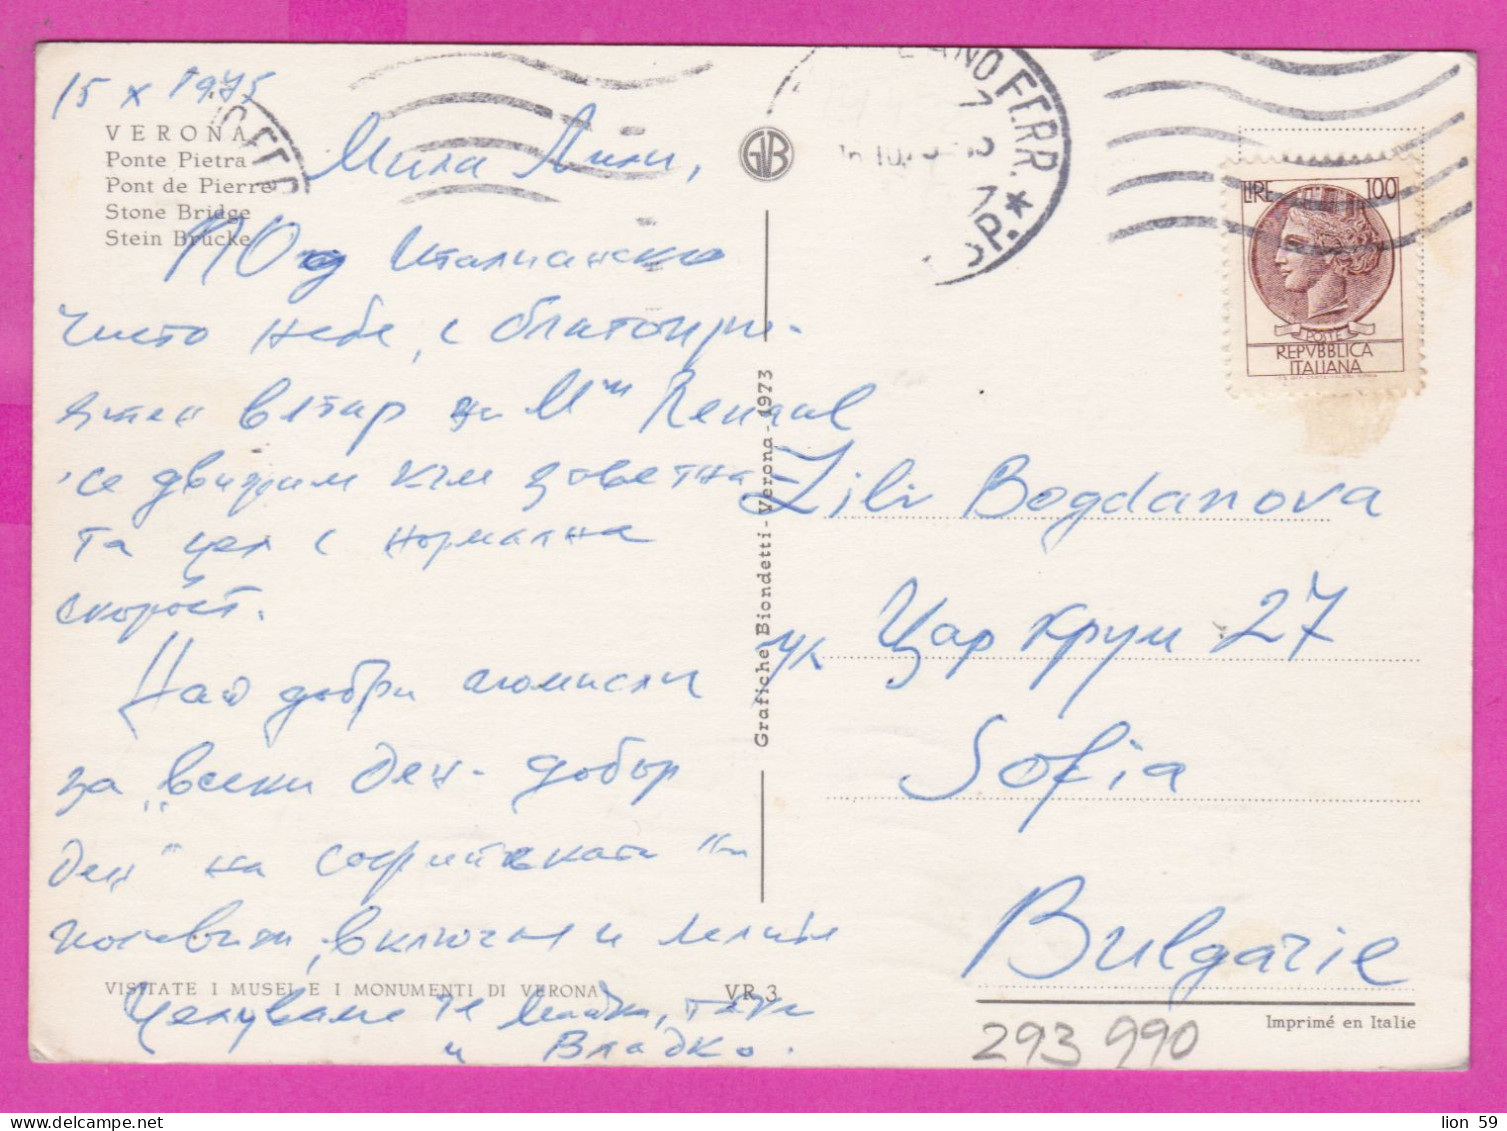 15 X 1975
VERONA
Ponte Pietra
Pont de Pierre
Stone Bridge
Stein Brücke
Мила Лили,
Под Италианско
чисто небе, с благопри
ятен вятър
се движим към заветна
та цел с нормална
скорост.
Най добри помисли
за „всеки ден - добър
ден" на софийската
включая и
Целуваме те Майка, тати
и Владко.
VISITATE I MUSEI E I MONUMENTI DI VERONA
VR 3
GVB
Grafiche Biondetti - Verona - 1973
ANO FERR.
LIRE 100
POSTE
REPVBBLICA
ITALIANA
Lili Bogdanova
ук Цар Крум 27
Sofia
Bulgarie
Imprimé en Italie
293 990
lion 59